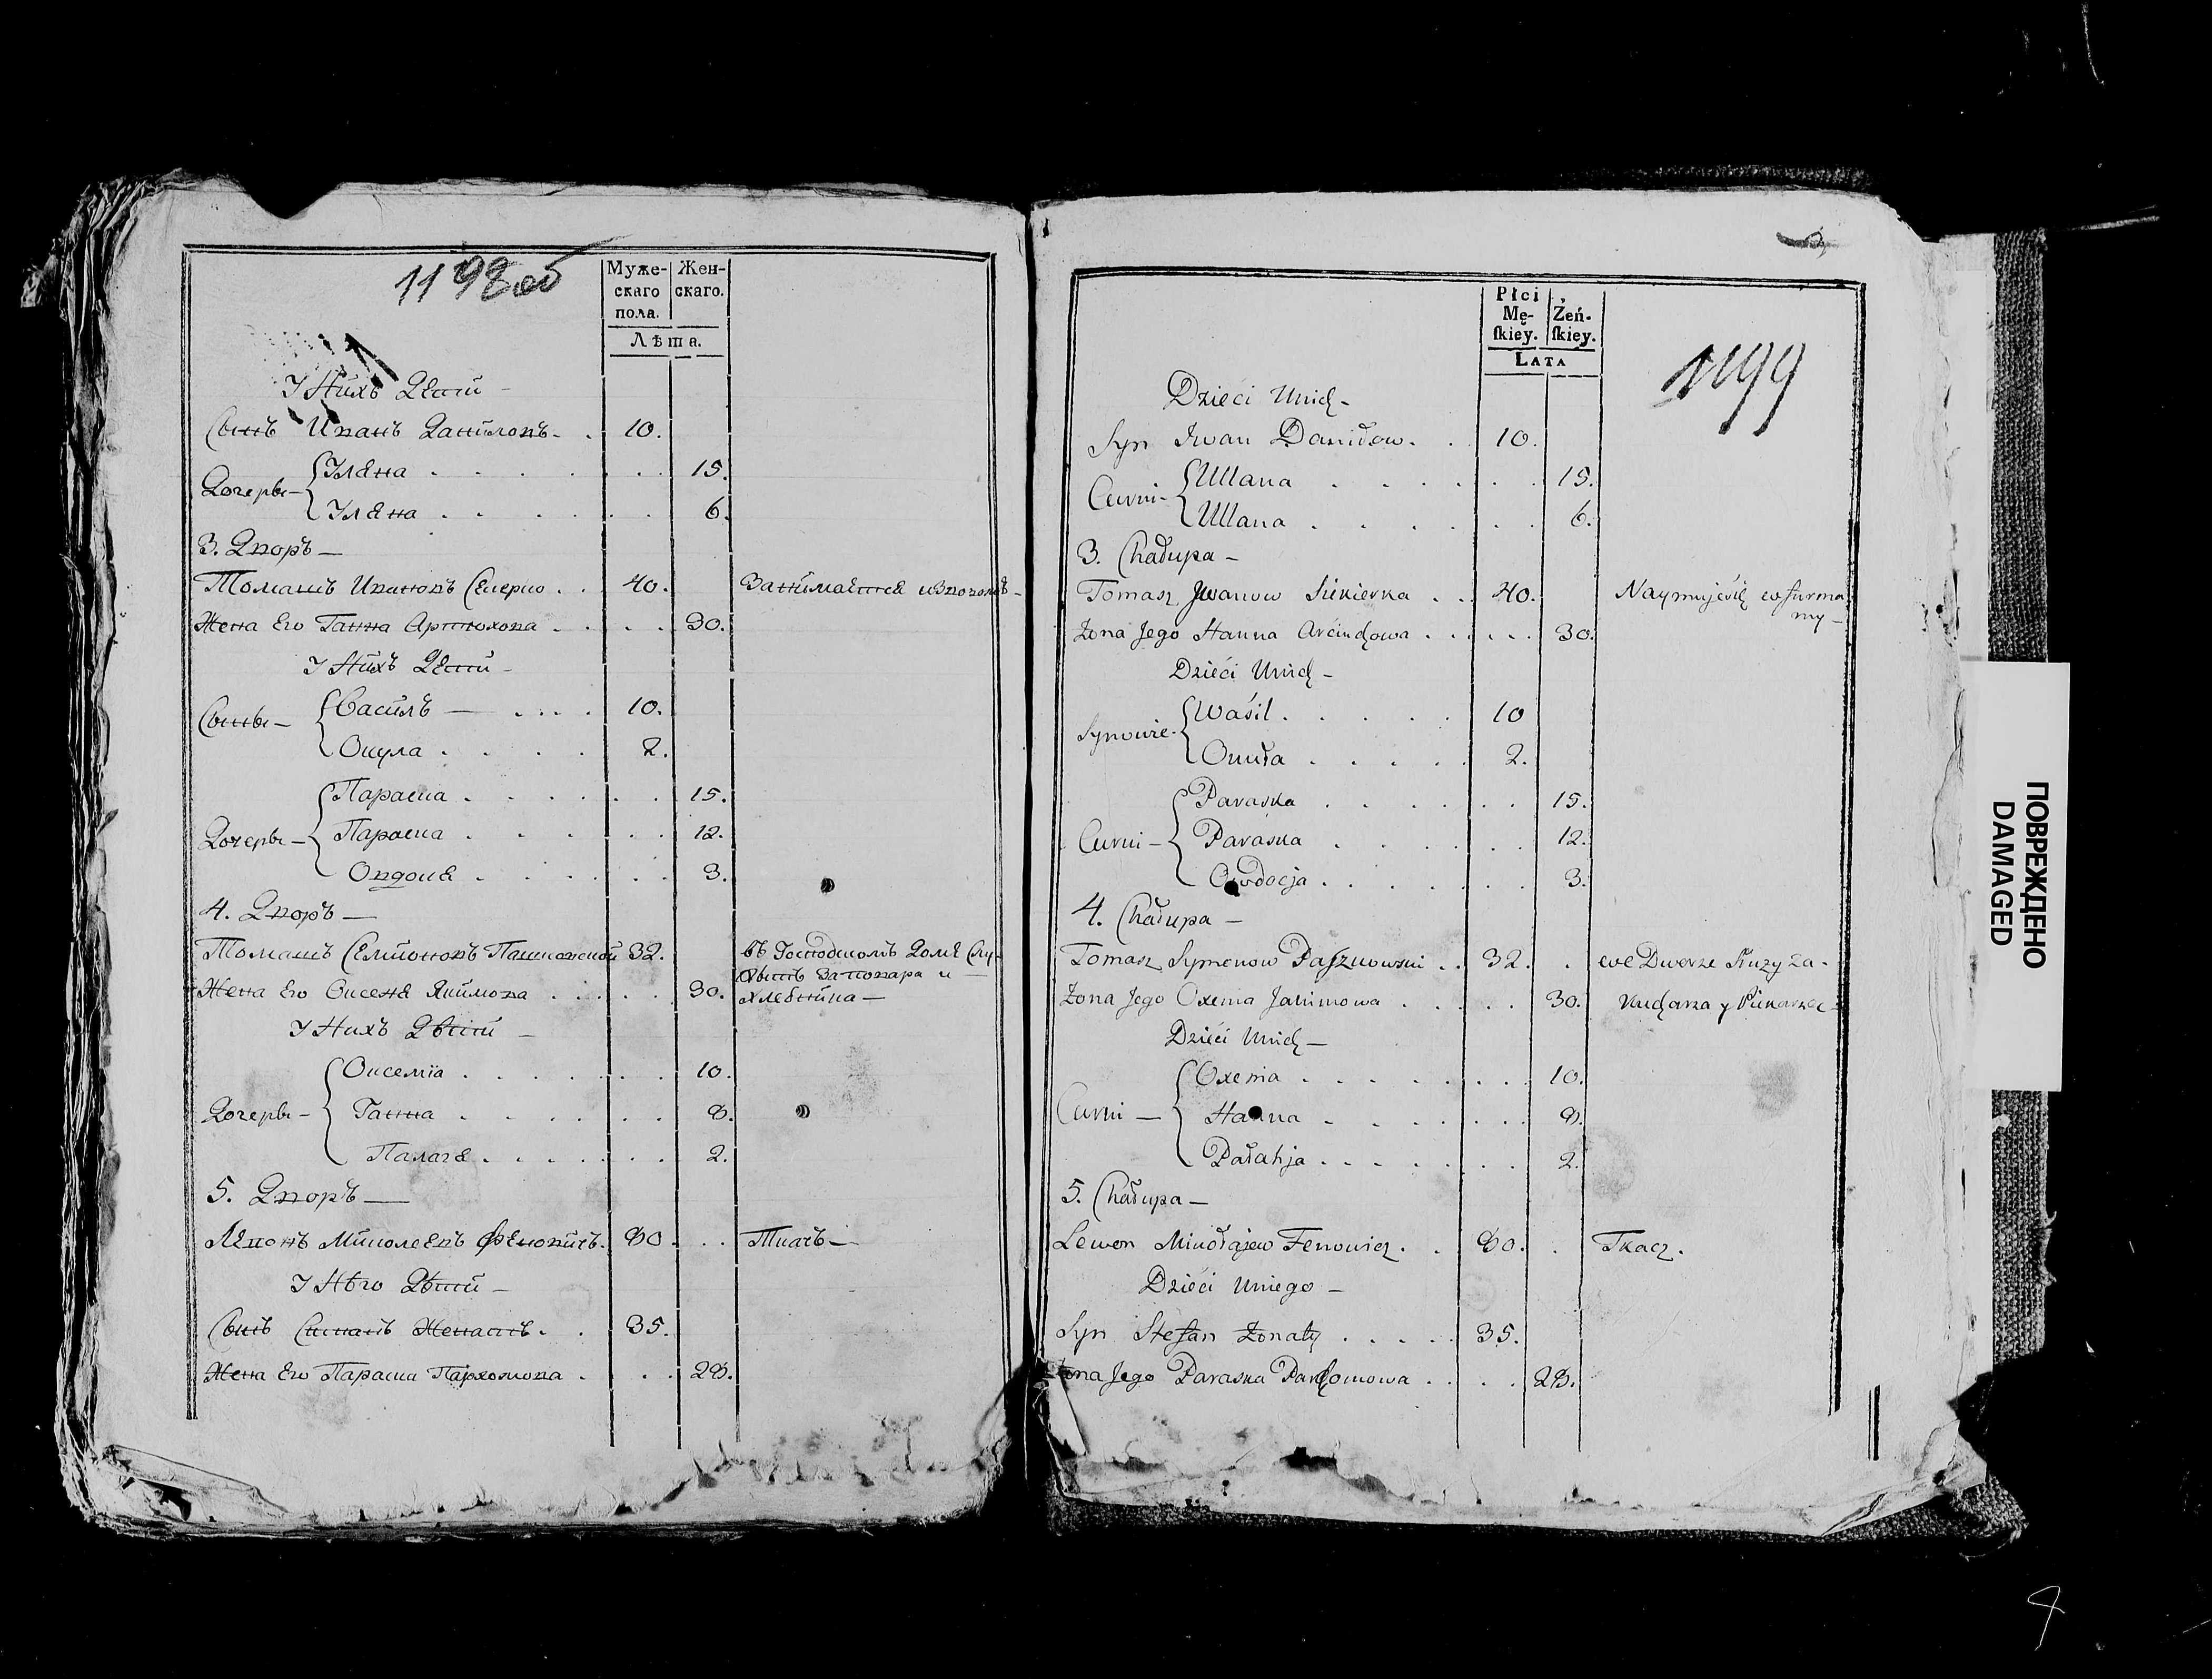 1198 об
Муже-
скаго
пола.
Жен-
скаго.
Лѣта.
У Нихъ Дети –
Сынъ Иванъ Даниловъ . 10.
Дочеры – Уляна . . . 15.
Уляна . . . 6.
3. Дворъ –
Томашъ Ивановъ Секерко . . 40. Занимается извозомъ –
Жена Его Ганна Артюхова . . . 30.
У Нихъ Дети –
Сыны – Василь – . . . 10.
Окула . . . 2.
Параска . . . 15.
Дочеры – Параска . . . 12.
Овдоця . . . 3.
4. Дворъ –
Томашъ Семіоновъ Пашковской 32. въ Господскомъ Доме Слу-
житъ за повара и –
Жена Его Оксеня Якимова . . . 30. хлебника –
У Нихъ Дѣти –
Оксемія . . . 10.
Дочеры – Ганна . . . 8.
Палагя . . . 2.
5. Дворъ –
Левонъ Миколаевъ Феновичъ . 80 . . Ткачъ –
У Него Дѣти –
Сынъ Степанъ Женатъ . . 35.
Жена Его Параска Пархомова . . . 28.
1199
Płci
Mę-
ſkiey.
Żeń-
ſkiey.
LATA
Dzieci Unich –
Syn Iwan Daniłow . . 10.
Curni – Ullana . . . 15.
Ullana . . . 6.
3. Chałupa –
Tomasz Jwanow Siekierka . . 40. Naymuje się w furma
ny –
Żona Jego Hanna Arciuchowa . . . 30.
Dzieci Unich –
Synowie – Waśil . . . 10
Okuła . . . 2.
Paraska . . . 15.
Curni – Paraska . . . 12.
Owdocja . . . 3.
4. Chałupa –
Tomasz Symonow Paszkowski . . 32. . we Dworze Służy za –
Żona Jego Oxenia Jakimowa . . . 30. kucharza y Piekarza –
Dzieci Unich –
Oxenia . . . 10.
Curni – Hanna . . . 8.
Pałahja . . . 2.
5. Chałupa –
Lewon Mikołajew Fenowicz . . 80. . Tkacz .
Dzieci Uniego –
Syn Stefan Żonaty . . . 35.
Żona Jego Paraska Parchomowa . . . 28.
ПОВРЕЖДЕНО
DAMAGED